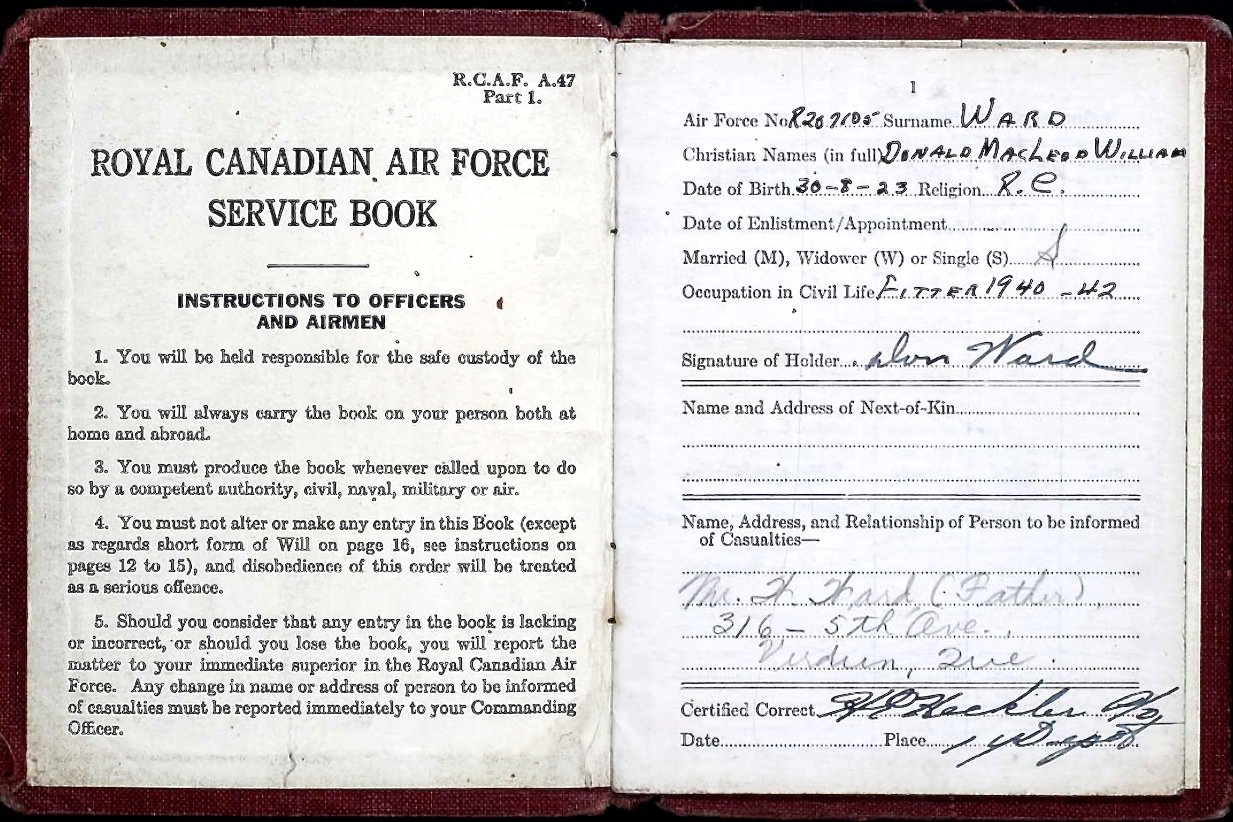 R.C.A.F. A.47
Part 1.
ROYAL CANADIAN AIR FORCE
SERVICE BOOK
INSTRUCTIONS TO OFFICERS
AND AIRMEN
1. You will be held responsible for the safe custody of the
book.
2. You will always carry the book on your person both at
home and abroad.
3. You must produce the book whenever called upon to do
so by a competent authority, civil, naval, military or air.
4. You must not alter or make any entry in this Book (except
as regards short form of Will on page 16, see instructions on
pages 12 to 15), and disobedience of this order will be treated
as a serious offence.
5. Should you consider that any entry in the book is lacking
or incorrect, or should you lose the book, you will report the
matter to your immediate superior in the Royal Canadian Air
Force. Any change in name or address of person to be informed
of casualties must be reported immediately to your Commanding
Officer.
1
Air Force No. R207105 Surname WARD
Christian Names (in full) DONALD MACLEOD WILLIAM
Date of Birth 30-8-23 Religion R.C.
Date of Enlistment/Appointment
Married (M), Widower (W) or Single (S) S
Occupation in Civil Life FITTER 1940-42
Signature of Holder Don Ward
Name and Address of Next-of-Kin
Name, Address, and Relationship of Person to be informed
of Casualties—
Mr. W. Ward (Father),
316 - 5th Ave.,
Verdun, Que.
Certified Correct
Date Place Depot